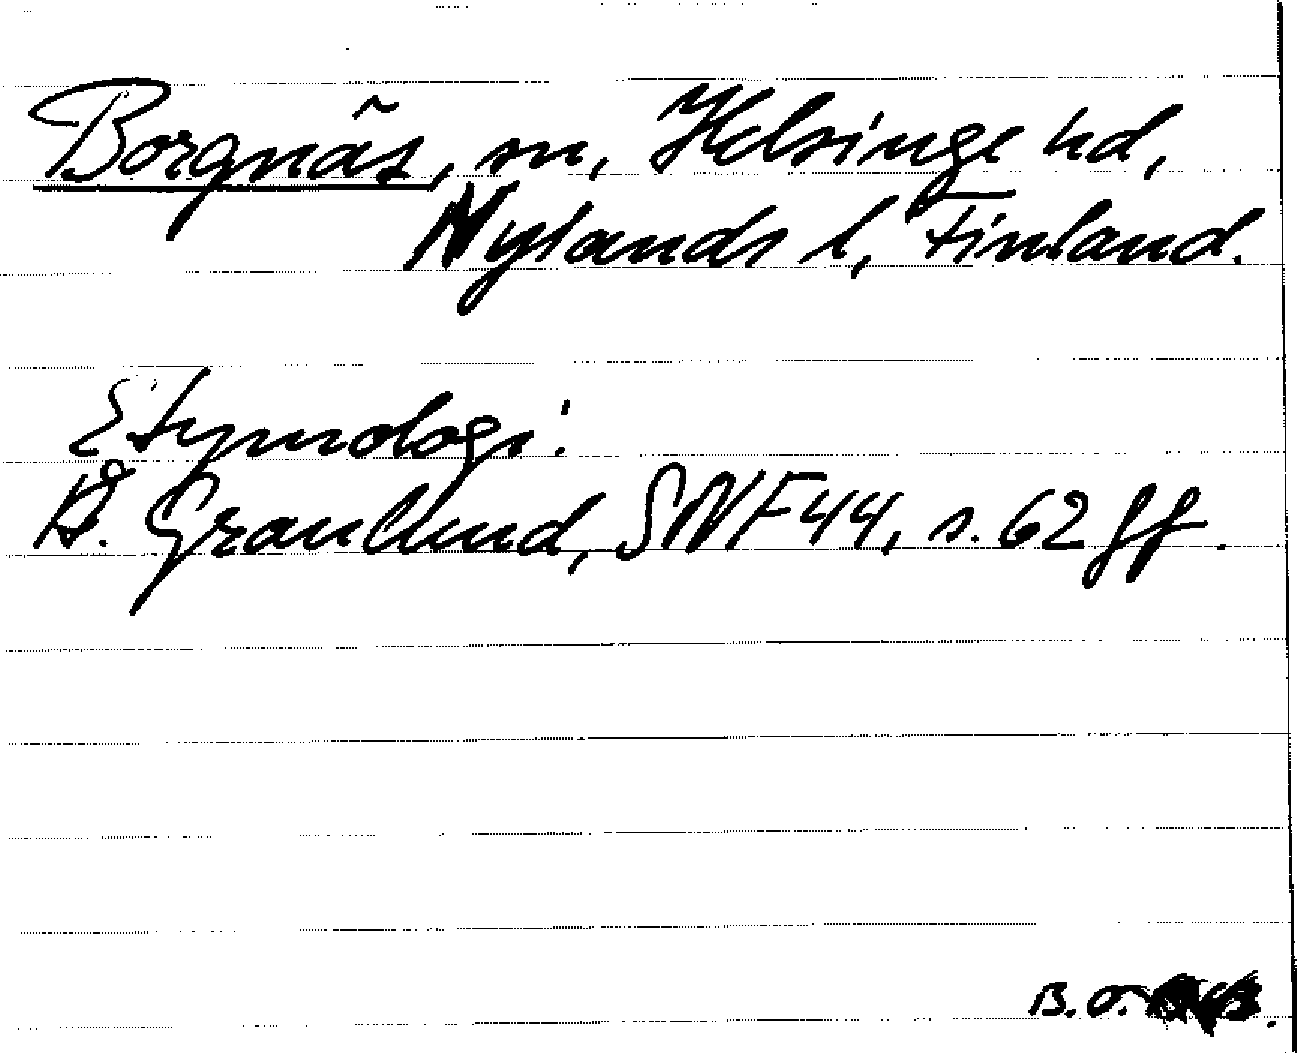 Borgnäs, sn, Helsinge hd,
Nylands l, Finland.
Etymologi:
Å. Granlund, SNF 44, s. 62 ff.
B. O.